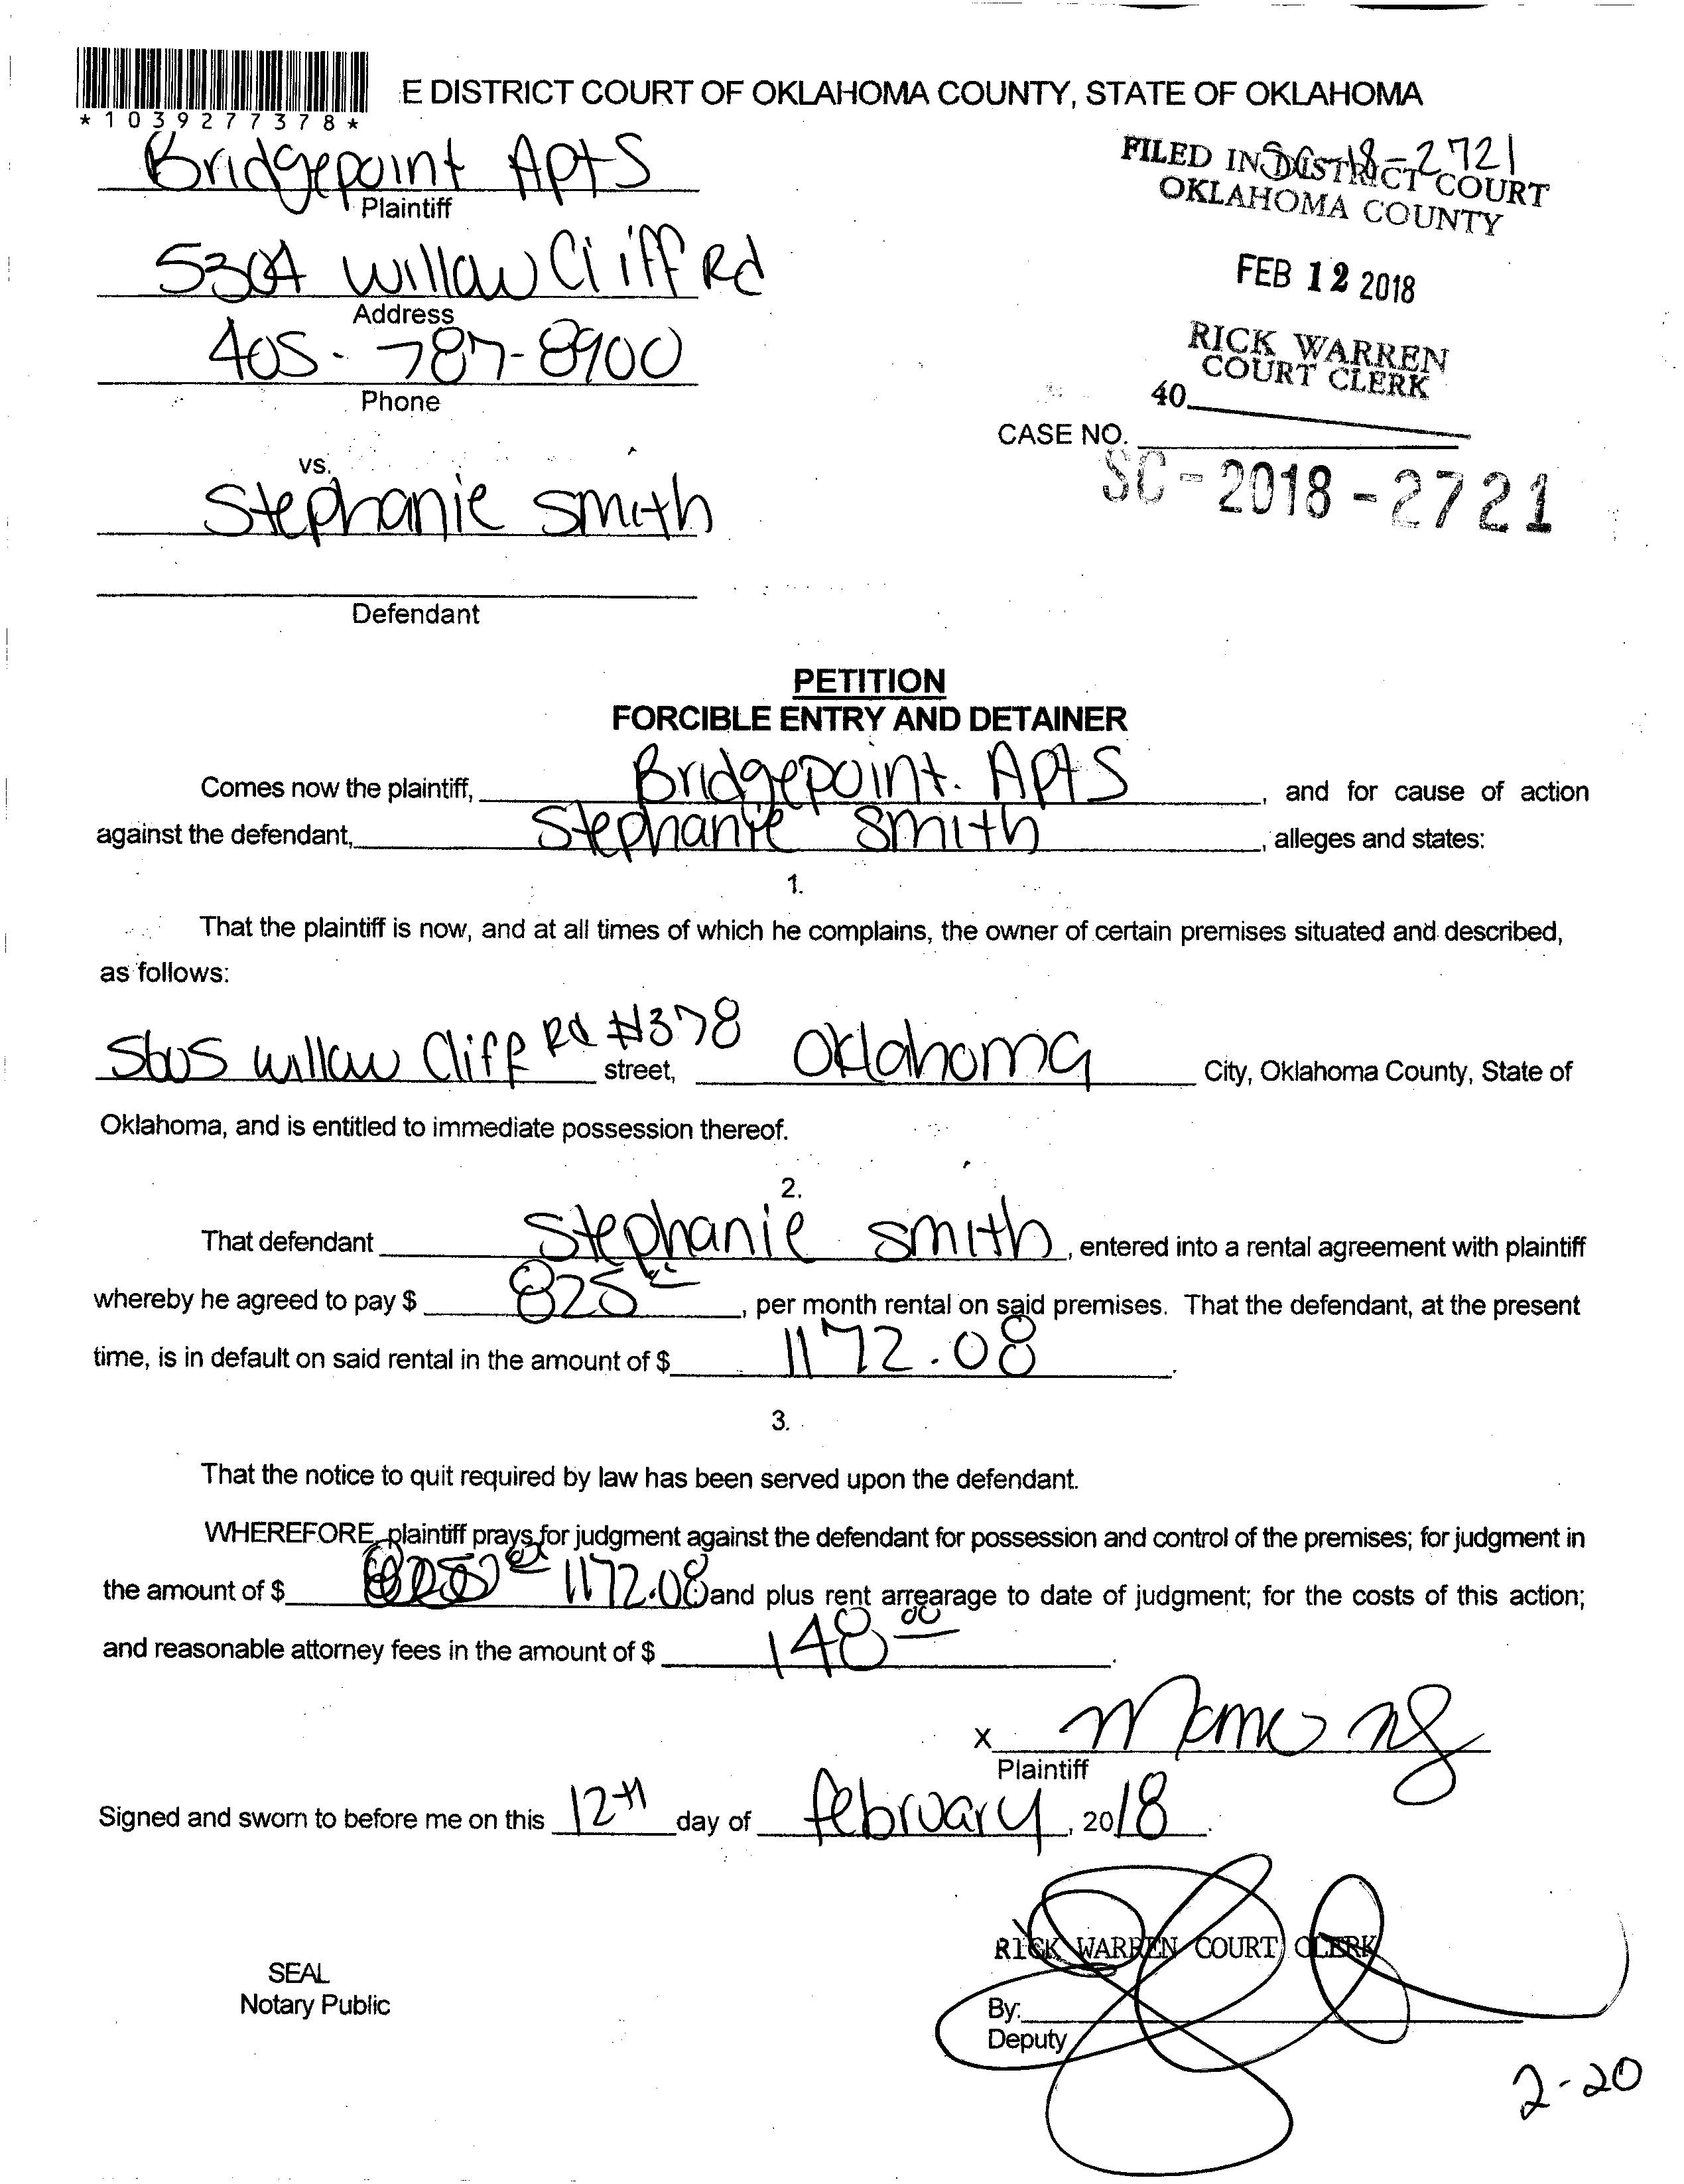 E DISTRICT COURT OF OKLAHOMA COUNTY, STATE OF OKLAHOMA
*1039277378*
Bridgepoint Apts
Plaintiff
SC-18-2721
FILED IN DISTRICT COURT
OKLAHOMA COUNTY
5304 Willow Cliff Rd
Address
FEB 12 2018
405-787-8900
Phone
RICK WARREN
COURT CLERK
40
CASE NO.
SC-2018-2721
vs.
Stephanie Smith
Defendant
PETITION
FORCIBLE ENTRY AND DETAINER
Comes now the plaintiff, Bridgepoint Apts, and for cause of action
against the defendant, Stephanie Smith, alleges and states:
1.
That the plaintiff is now, and at all times of which he complains, the owner of certain premises situated and described,
as follows:
Willow Cliff Rd #378 street, Oklahoma City, Oklahoma County, State of
Oklahoma, and is entitled to immediate possession thereof.
2.
That defendant Stephanie Smith, entered into a rental agreement with plaintiff
whereby he agreed to pay $ 825, per month rental on said premises. That the defendant, at the present
time, is in default on said rental in the amount of $ 1172.08.
3.
That the notice to quit required by law has been served upon the defendant.
WHEREFORE, plaintiff prays for judgment against the defendant for possession and control of the premises; for judgment in
the amount of $ 1172.08 and plus rent arrearage to date of judgment; for the costs of this action;
and reasonable attorney fees in the amount of $ 148 00.
X
Plaintiff
Signed and sworn to before me on this 12th day of february, 2018.
RICK WARREN COURT CLERK
SEAL
Notary Public
By:
Deputy
2-20